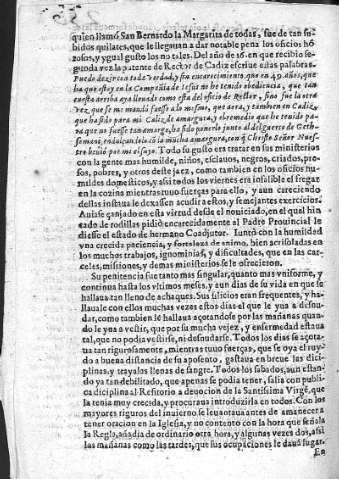 quien llamó San Bernardo la Margarita de todas, fue de tan su-
bidos quilates, que le llegauan a dar notable pena los oficios hó-
rosos, y ygual gusto los no tales. Del año de 16. en que recibio se-
gunda vez la patente de Rector de Cadiz escriue assi estas palabras
Puedo dezir con toda verdad, y sin encarecimiento, que en 49. años, que
ha que estoy en la Compañia de Iesus no he tenido obediencia, que tan
cuesta arriba aya lleuado como esta del oficio de Retor, sino fue la otra
vez, que se me mandó fuesse a lo mesmo, que aora, y tambien en Cadiz,
que ha sido para mi Caliz de amargura, y el remedio que he tenido pa-
ra que no fuesse tan amargo, ha sido ponerlo junto al del guerto de Geth-
semani, endulçandolo cõ la mucha amargura, con q̃ Christo Señor Nues-
tro beuió por mi el suyo. Todo su gusto era tratar en sus ministerios
con la gente mas humilde, niños, esclauos, negros, criados, pre-
sos, pobres, y otros deste jaez, como tambien en los oficios hu-
mildes domesticos, y assi todos los viernes era infalible el fregar
en la cozina mientras tuuo fuerças para ello, y aun careciendo
dellas instaua le dexassen acudir a estos, y semejantes exercicios.
Auiase çanjado en esta virtud desde el nouiciado, en el qual hin
cado de rodillas pidió encarecidamente al Padre Prouincial le
diesse el estado de hermano Coadjutor. Iuntó con la humildad
vna crecida paciencia, y fortaleza de animo, bien acrisoladas en
los muchos trabajos, ignominias, y dificultades, que en las car-
celes, missiones, y demas ministerios se le ofrecieron.
Su penitencia fue tanto mas singular, quanto mas vniforme, y
continua hasta los vltimos meses, y aun dias de su vida en que se
hallaua tan lleno de achaques. Sus silicios eran frequentes, y ha-
llauale con ellos muchas vezes estos dias el que le yua a desnu-
dar, como tambien le hallaua açotandose por las mañanas quando
le yua a vestir, que por su mucha vejez, y enfermedad estaua
tal, que no podia vestirse, ni desnudarse. Todos los dias se açota-
ua tan rigurosamente, mientras tuuo fuerças, que se oya el ruy-
do a buena distancia de su aposento, gastaua en breue las dici-
plinas, y trayalos llenas de sangre. Todos los sabados, aun estan-
do ya tan debilitado, que apenas se podia tener, salia con publi-
ca diciplina al Refitorio a deuocion de la Santissima Virgẽ, que
la tenia muy crecida, y procuraua introduzirla en todos. Con los
mayores rigures del inuierno, se leuantaua antes de amanecer a
tener oracion en la Iglesia, y no contento con la hora que señala
la Regla, añadia de ordinario otra hora, y algunas vezes dos, assi
las mañanas como las tardes, que sus ocupaciones le dauã lugar.
En